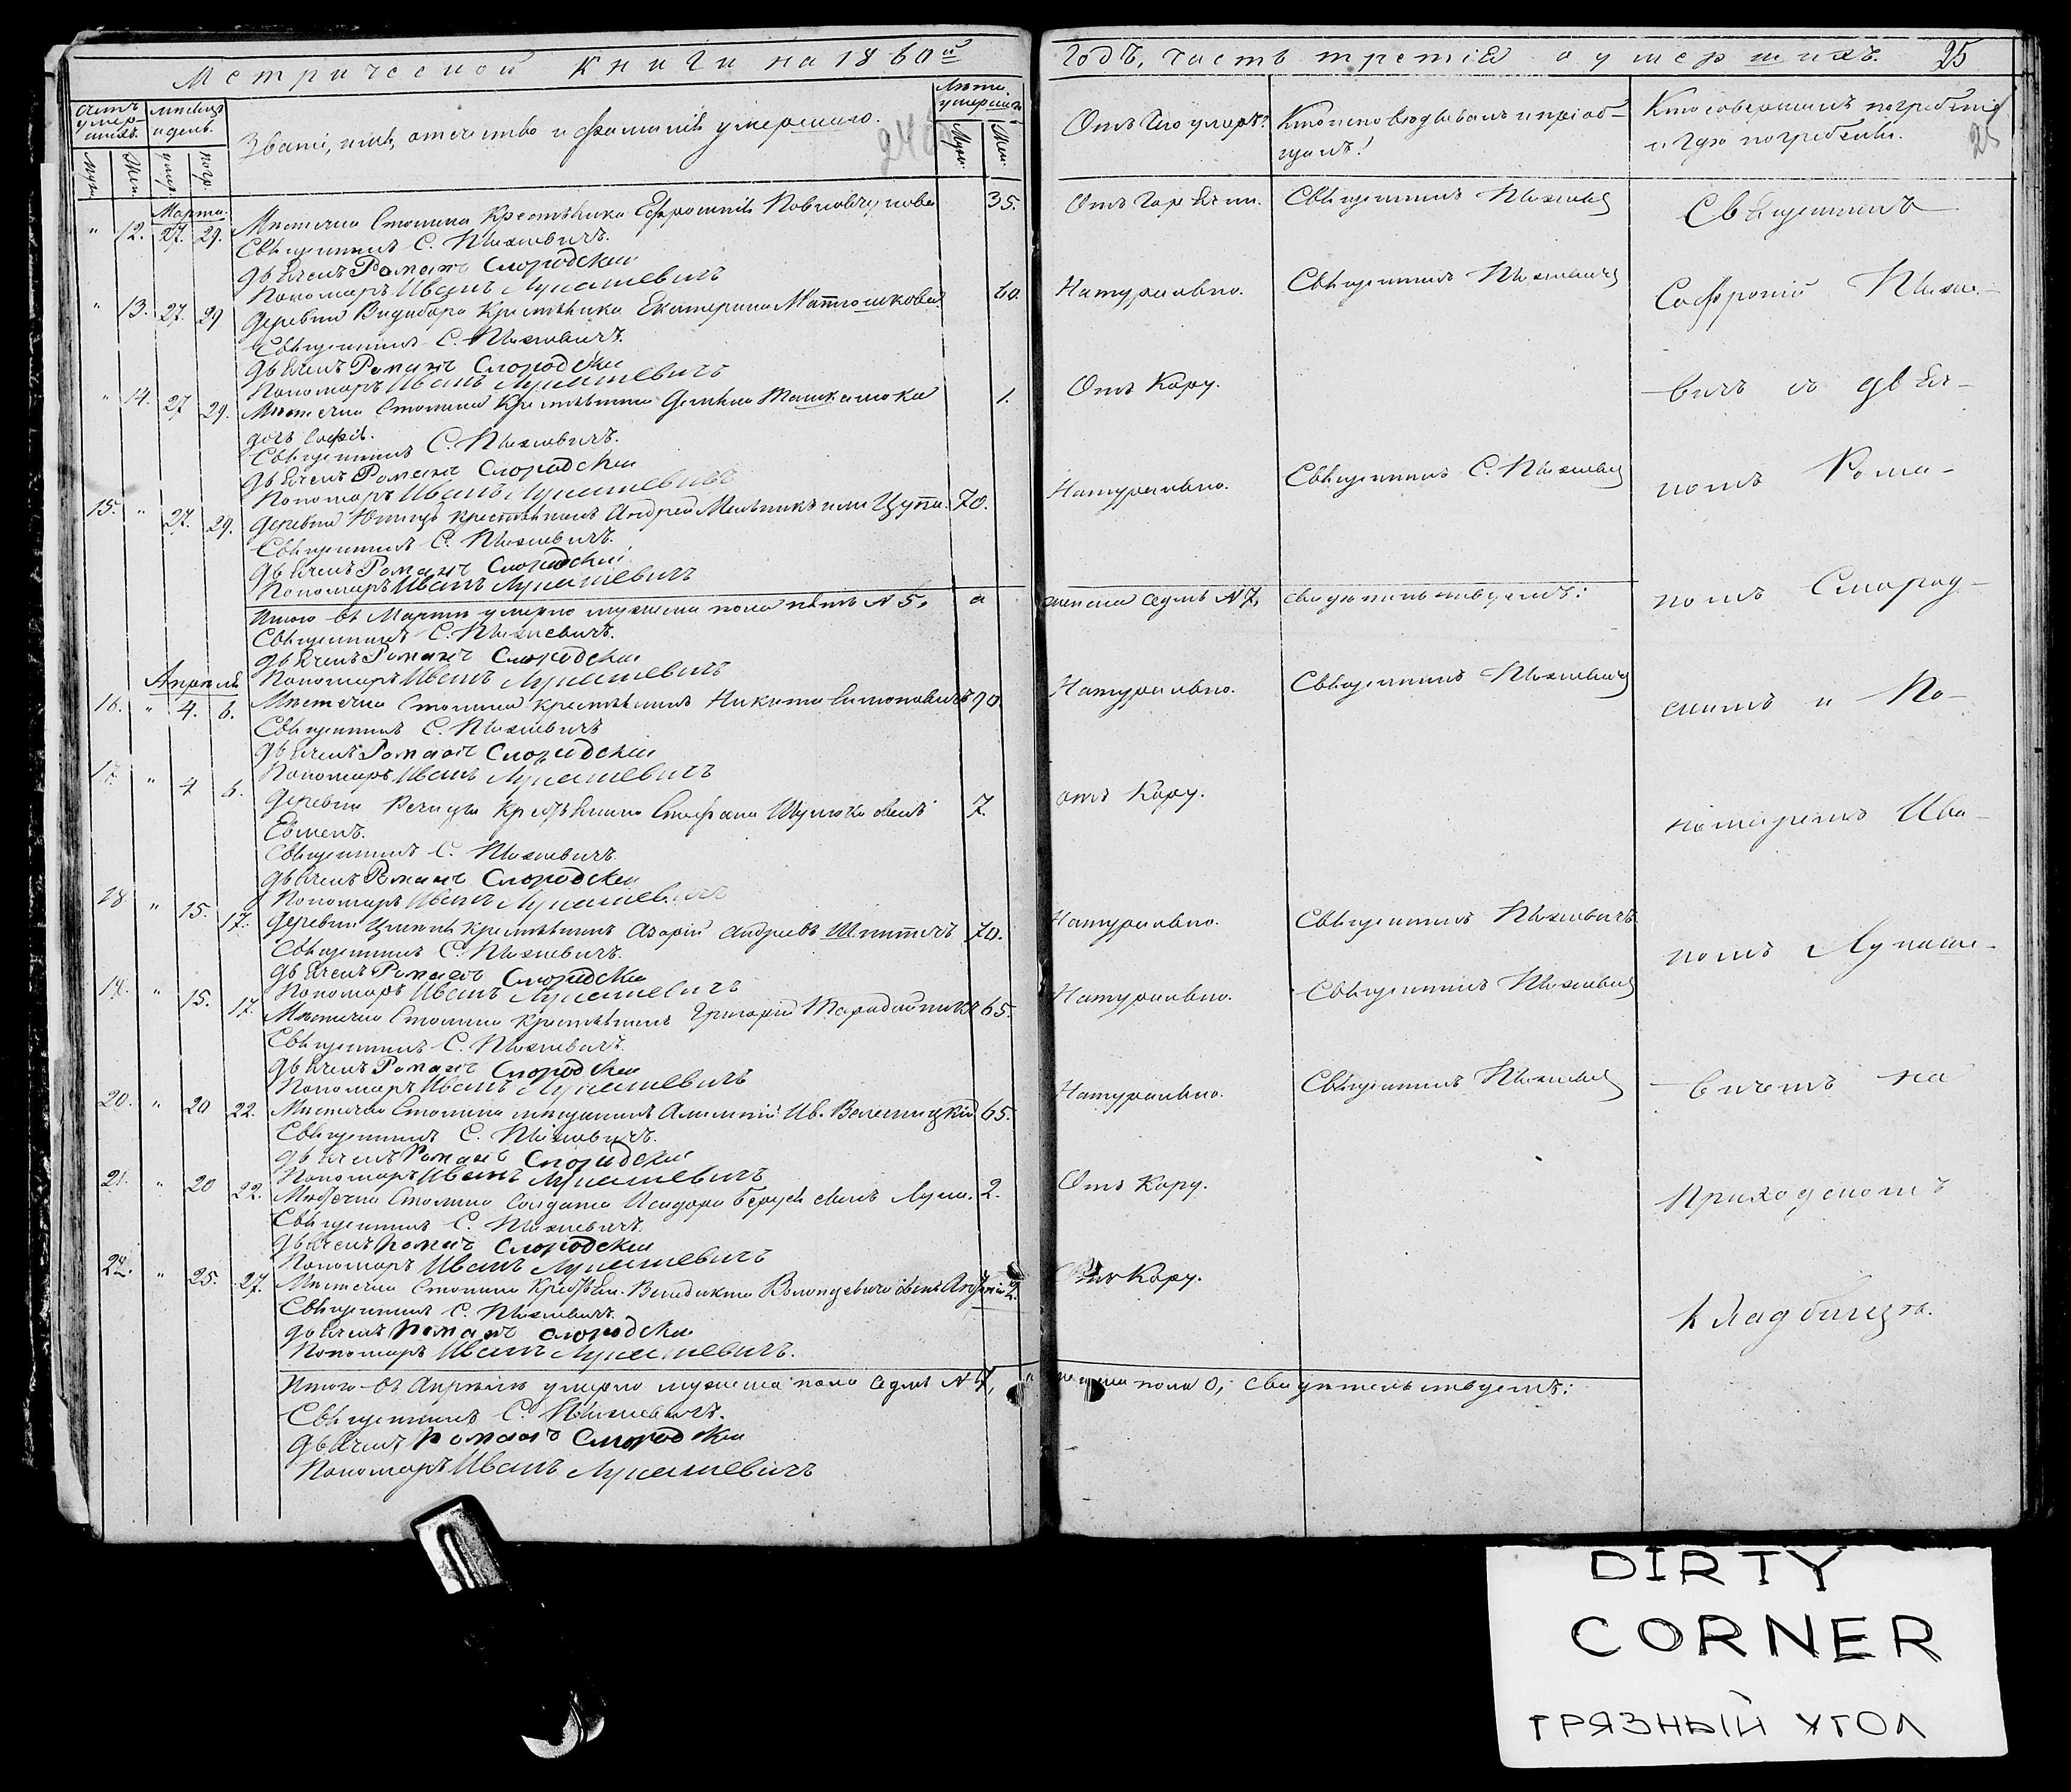 Метрической Книги на 1860й
годъ, часть третія о умершихъ. 25
Счетъ умер-
шихъ.
Муж. Жен.
Мѣсяцъ
и день.
умер. погр.
Званіе, имя, отечество и фамилія умершаго.
Лѣта
умершаго
Муж. Жен.
Отъ чего умеръ?
Кто исповѣдывалъ и пріоб-
щалъ?
Кто совершилъ погребеніе
и гдѣ погребены.
25
Марта.
" 12. 27. 29. Мѣстечка Столина Крестьянка Ефросинія 35.
Священникъ С. Пыхневичъ.
Дьячекъ Романъ Смородскій
Пономарь Иванъ Лукашевичъ
" 13. 27. 29 Деревни Видибора Крестьянка Екатерина Матюшкова 60.
Священникъ С. Пыхневичъ.
Дьячекъ Романъ Смородскій
Пономарь Иванъ Лукашевичъ
" 14. 27 29. Мѣстечка Столина Крестьянина 1.
дочь Софія.
Священникъ С. Пыхневичъ.
Дьячекъ Романъ Смородскій
Пономарь Иванъ Лукашевичъ
15. " 27. 29. Деревни Крестьянинъ Андрей Мельникъ или Цупа. 70.
Священникъ С. Пыхневичъ.
Дьячекъ Романъ Смородскій
Пономарь Иванъ Лукашевичъ
Итого въ Мартѣ умерло мужеска пола пять N 5, а
Священникъ С. Пыхневичъ.
Дьячекъ Романъ Смородскій
Пономарь Иванъ Лукашевичъ
Апрѣль
16. " 4. 6. Мѣстечка Столина Крестьянинъ Никита Симоновичъ 90.
Священникъ С. Пыхневичъ
Дьячекъ Романъ Смородскій
Пономарь Иванъ Лукашевичъ
17. " 4 6. Деревни Речицы Крестьянина Стефана сынъ 7.
Евменъ.
Священникъ С. Пыхневичъ.
Дьячекъ Романъ Смородскій
Пономарь Иванъ Лукашевичъ
18. " 15. 17. Деревни Крестьянинъ Азарій Андреевъ Шпитичъ 70.
Священникъ С. Пыхневичъ.
Дьячекъ Романъ Смородскій
Пономарь Иванъ Лукашевичъ
19. " 15. 17. Мѣстечка Столина Крестьянинъ Григорій 65.
Священникъ С. Пыхневичъ.
Дьячекъ Романъ Смородскій
Пономарь Иванъ Лукашевичъ
20. " 20 22. Мѣстечка Столина мѣщанинъ Ив. Велесницкій 65.
Священникъ С. Пыхневичъ.
Дьячекъ Романъ Смородскій
Пономарь Иванъ Лукашевичъ
21. " 20 22. Мѣстечка Столина Солдата Исидора сынъ Лука. 2.
Священникъ С. Пыхневичъ.
Дьячекъ Романъ Смородскій
Пономарь Иванъ Лукашевичъ
22. " 25. 27. Мѣстечка Столина Крестьян. Венедикта сынъ Андрей 2.
Священникъ С. Пыхневичъ.
Дьячекъ Романъ Смородскій
Пономарь Иванъ Лукашевичъ.
Итого въ Апрѣлѣ умерло мужеска пола седмь N 7,
Священникъ С. Пыхневичъ.
Дьячекъ Романъ Смородскій
Пономарь Иванъ Лукашевичъ
Отъ Горячки. Священникъ Пыхневичъ
Натурально. Священникъ Пыхневичъ
Отъ Кору.
Натурально. Священникъ С. Пыхневичъ
женска седмь N 7, свидѣтельствуемъ:
Натурально. Священникъ Пыхневичъ
отъ Кору.
Натурально. Священникъ Пыхневичъ
Натурально. Священникъ Пыхневичъ
Натурально. Священникъ Пыхневичъ
Отъ Кору.
Отъ Кору.
женска пола 0, свидѣтельствуемъ:
Священникъ
Софроній Пыхне-
вичъ съ дьяч-
комъ Рома-
номъ Смород-
скимъ и По-
номаремъ Ива-
номъ Лукаше-
вичемъ на
Приходскомъ
Кладбищѣ.
DIRTY
CORNER
ГРЯЗНЫЙ УГОЛ